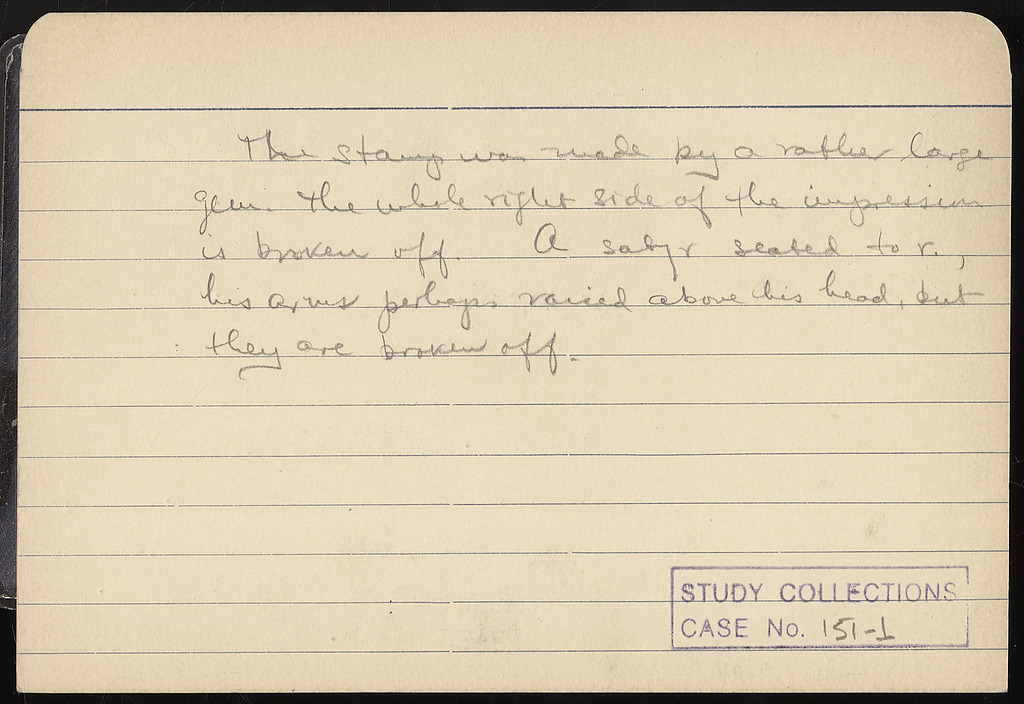 The stamp was made by a rather large
gem. The whole right side of the impression
is broken off. A satyr seated to r.,
his arms perhaps raised above his head, but
they are broken off.
STUDY COLLECTIONS
CASE No. 151-1